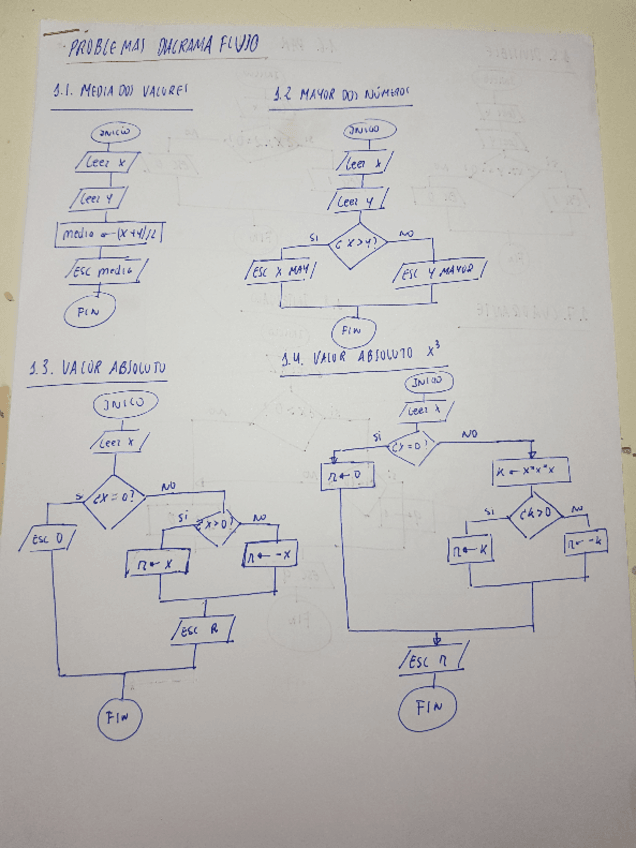 PROBLEMAS DIAGRAMA FLUJO
1.1. MEDIA DOS VALORES
INICIO
Leer X
Leer Y
media ← (X+Y)/2
ESC media
FIN
1.2 MAYOR DOS NÚMEROS
INICIO
Leer X
Leer Y
¿X>Y?
SI
NO
ESC X MAY
ESC Y MAYOR
FIN
1.3. VALOR ABSOLUTO
INICIO
Leer X
¿X=0?
S
NO
ESC 0
¿X>0?
SI
NO
R ← X
R ← -X
ESC R
FIN
1.4. VALOR ABSOLUTO X³
INICIO
Leer X
¿X=0?
SI
NO
R ← 0
K ← X*X*X
¿K>0
SI
NO
R ← K
R ← -K
ESC R
FIN